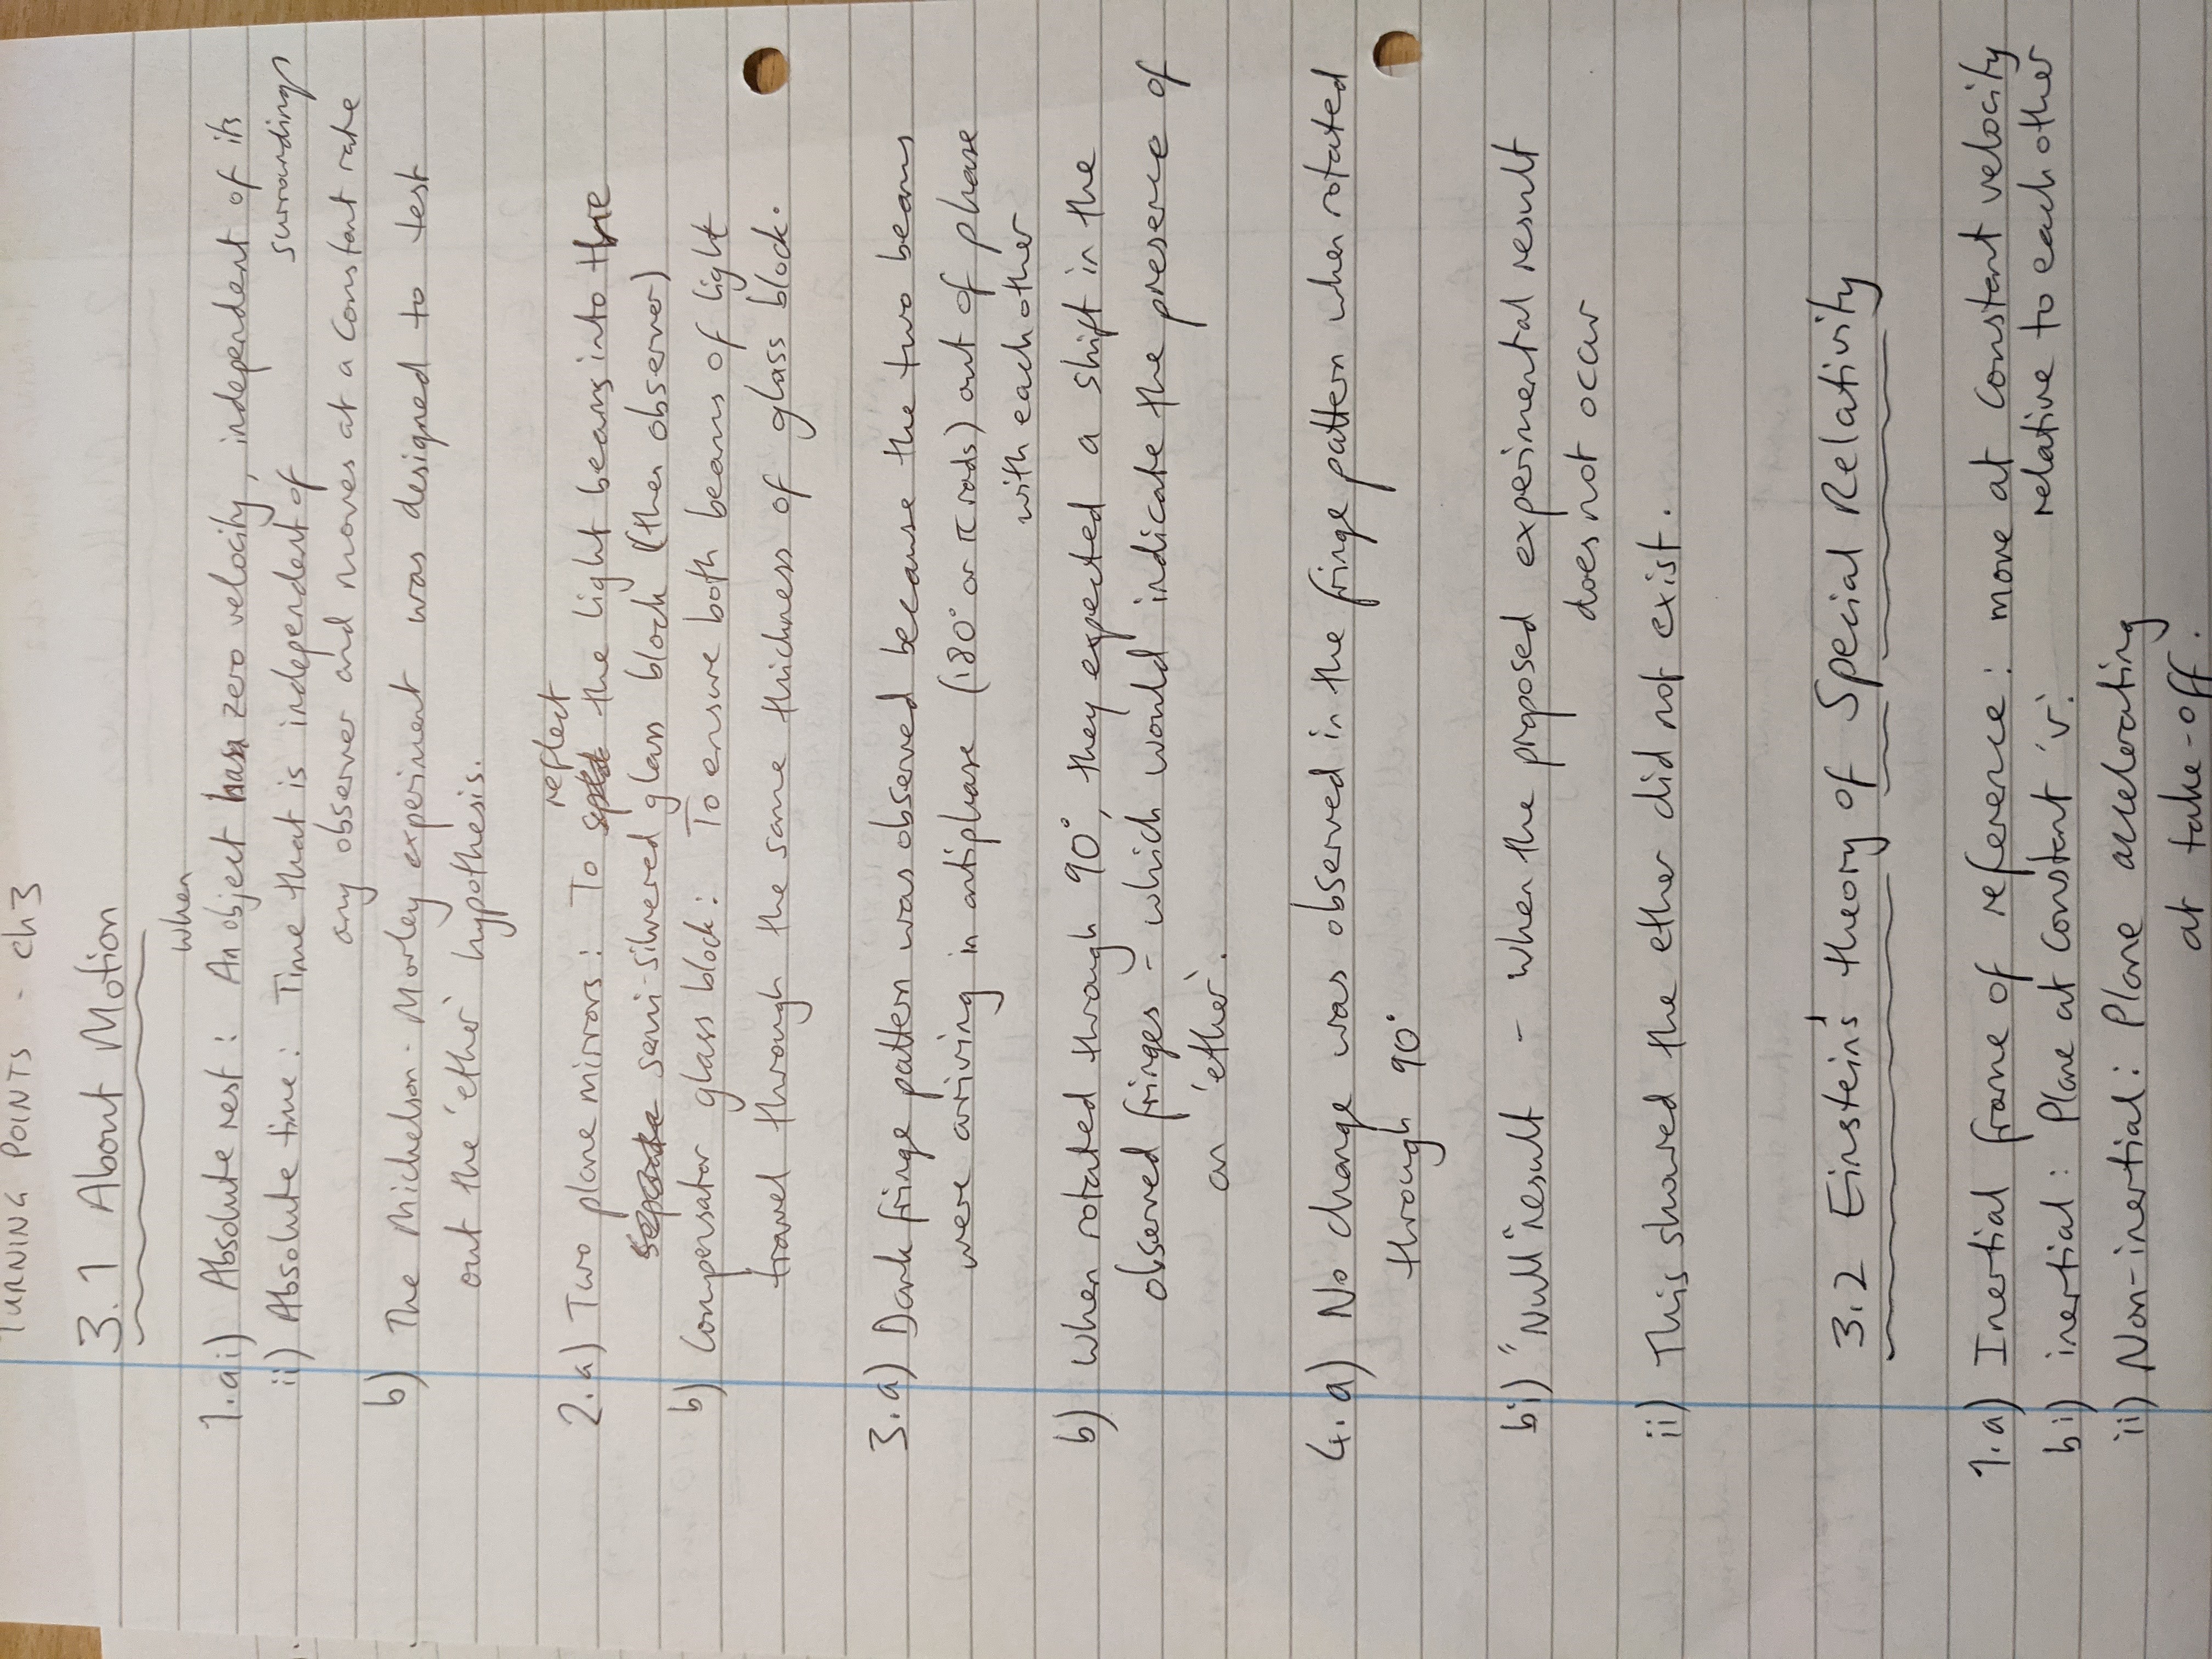 TURNING POINTS - Ch3
3.1 About Motion
when
1.ai) Absolute rest: An object has zero velocity, independent of its
surroundings
ii) Absolute time: Time that is independent of
any observer and moves at a constant rate
b) The Michelson-Morley experiment was designed to test
out the 'ether' hypothesis.
reflect
2.a) Two plane mirrors: To the light beams into the
semi-silvered glass block (then observer)
b) Compensator glass block: To ensure both beams of light
travel through the same thickness of glass block.
3.a) Dark fringe pattern was observed because the two beams
were arriving in antiphase (180° or π rads) out of phase
with each other
b) When rotated through 90°, they expected a shift in the
observed fringes - which would indicate the presence of
an 'ether'.
4.a) No change was observed in the fringe pattern when rotated
through 90°
bi) "Null result - when the proposed experimental result
does not occur
ii) This showed the ether did not exist.
3.2 Einstein's theory of Special Relativity
1.a) Inertial frame of reference: move at constant velocity
relative to each other
bi) inertial: Plane at constant 'v'.
ii) Non-inertial: Plane accelerating
at take-off.